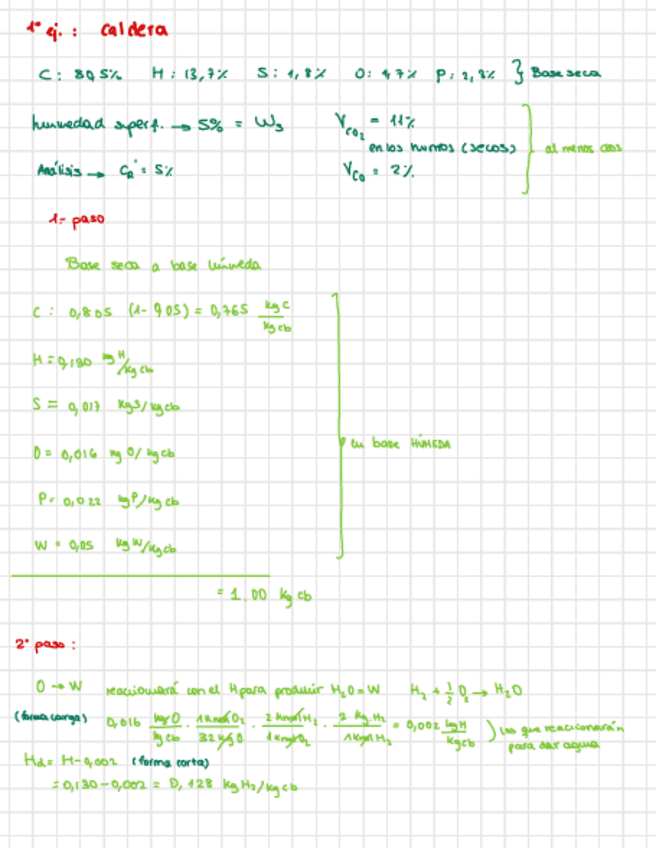 1º ej.: caldera
C: 80,5% H: 13,7% S: 1,8% O: 1,7% P: 2,3% } Base seca
humedad superf. → 5% = Ws
V_CO2 = 11%
en los humos (secos)
al menos dos
Análisis → C_R' = 5%
V_CO = 2%
1- paso
Base seca a base húmeda
C: 0,805 (1-0,05) = 0,765 kg C / kg cb
H = 0,130 kg H/kg cb
S = 0,017 kg S/kg cb
O = 0,016 kg O/kg cb
en base HÚMEDA
P = 0,022 kg P/kg cb
W = 0,05 kg W/kg cb
= 1.00 kg cb
2º paso:
O → W reaccionará con el H para producir H2O = W H2 + 1/2 O2 → H2O
(forma larga) 0,016 kg O / kg cb · 1 kmol O2 / 32 kg O · 2 kmol H2 / 1 kmol O2 · 2 kg H2 / 1 kmol H2 = 0,002 kg H / kg cb ) los que reaccionarán
para dar agua
Hd = H - 0,002 (forma corta)
= 0,130 - 0,002 = 0,128 kg H2/kg cb